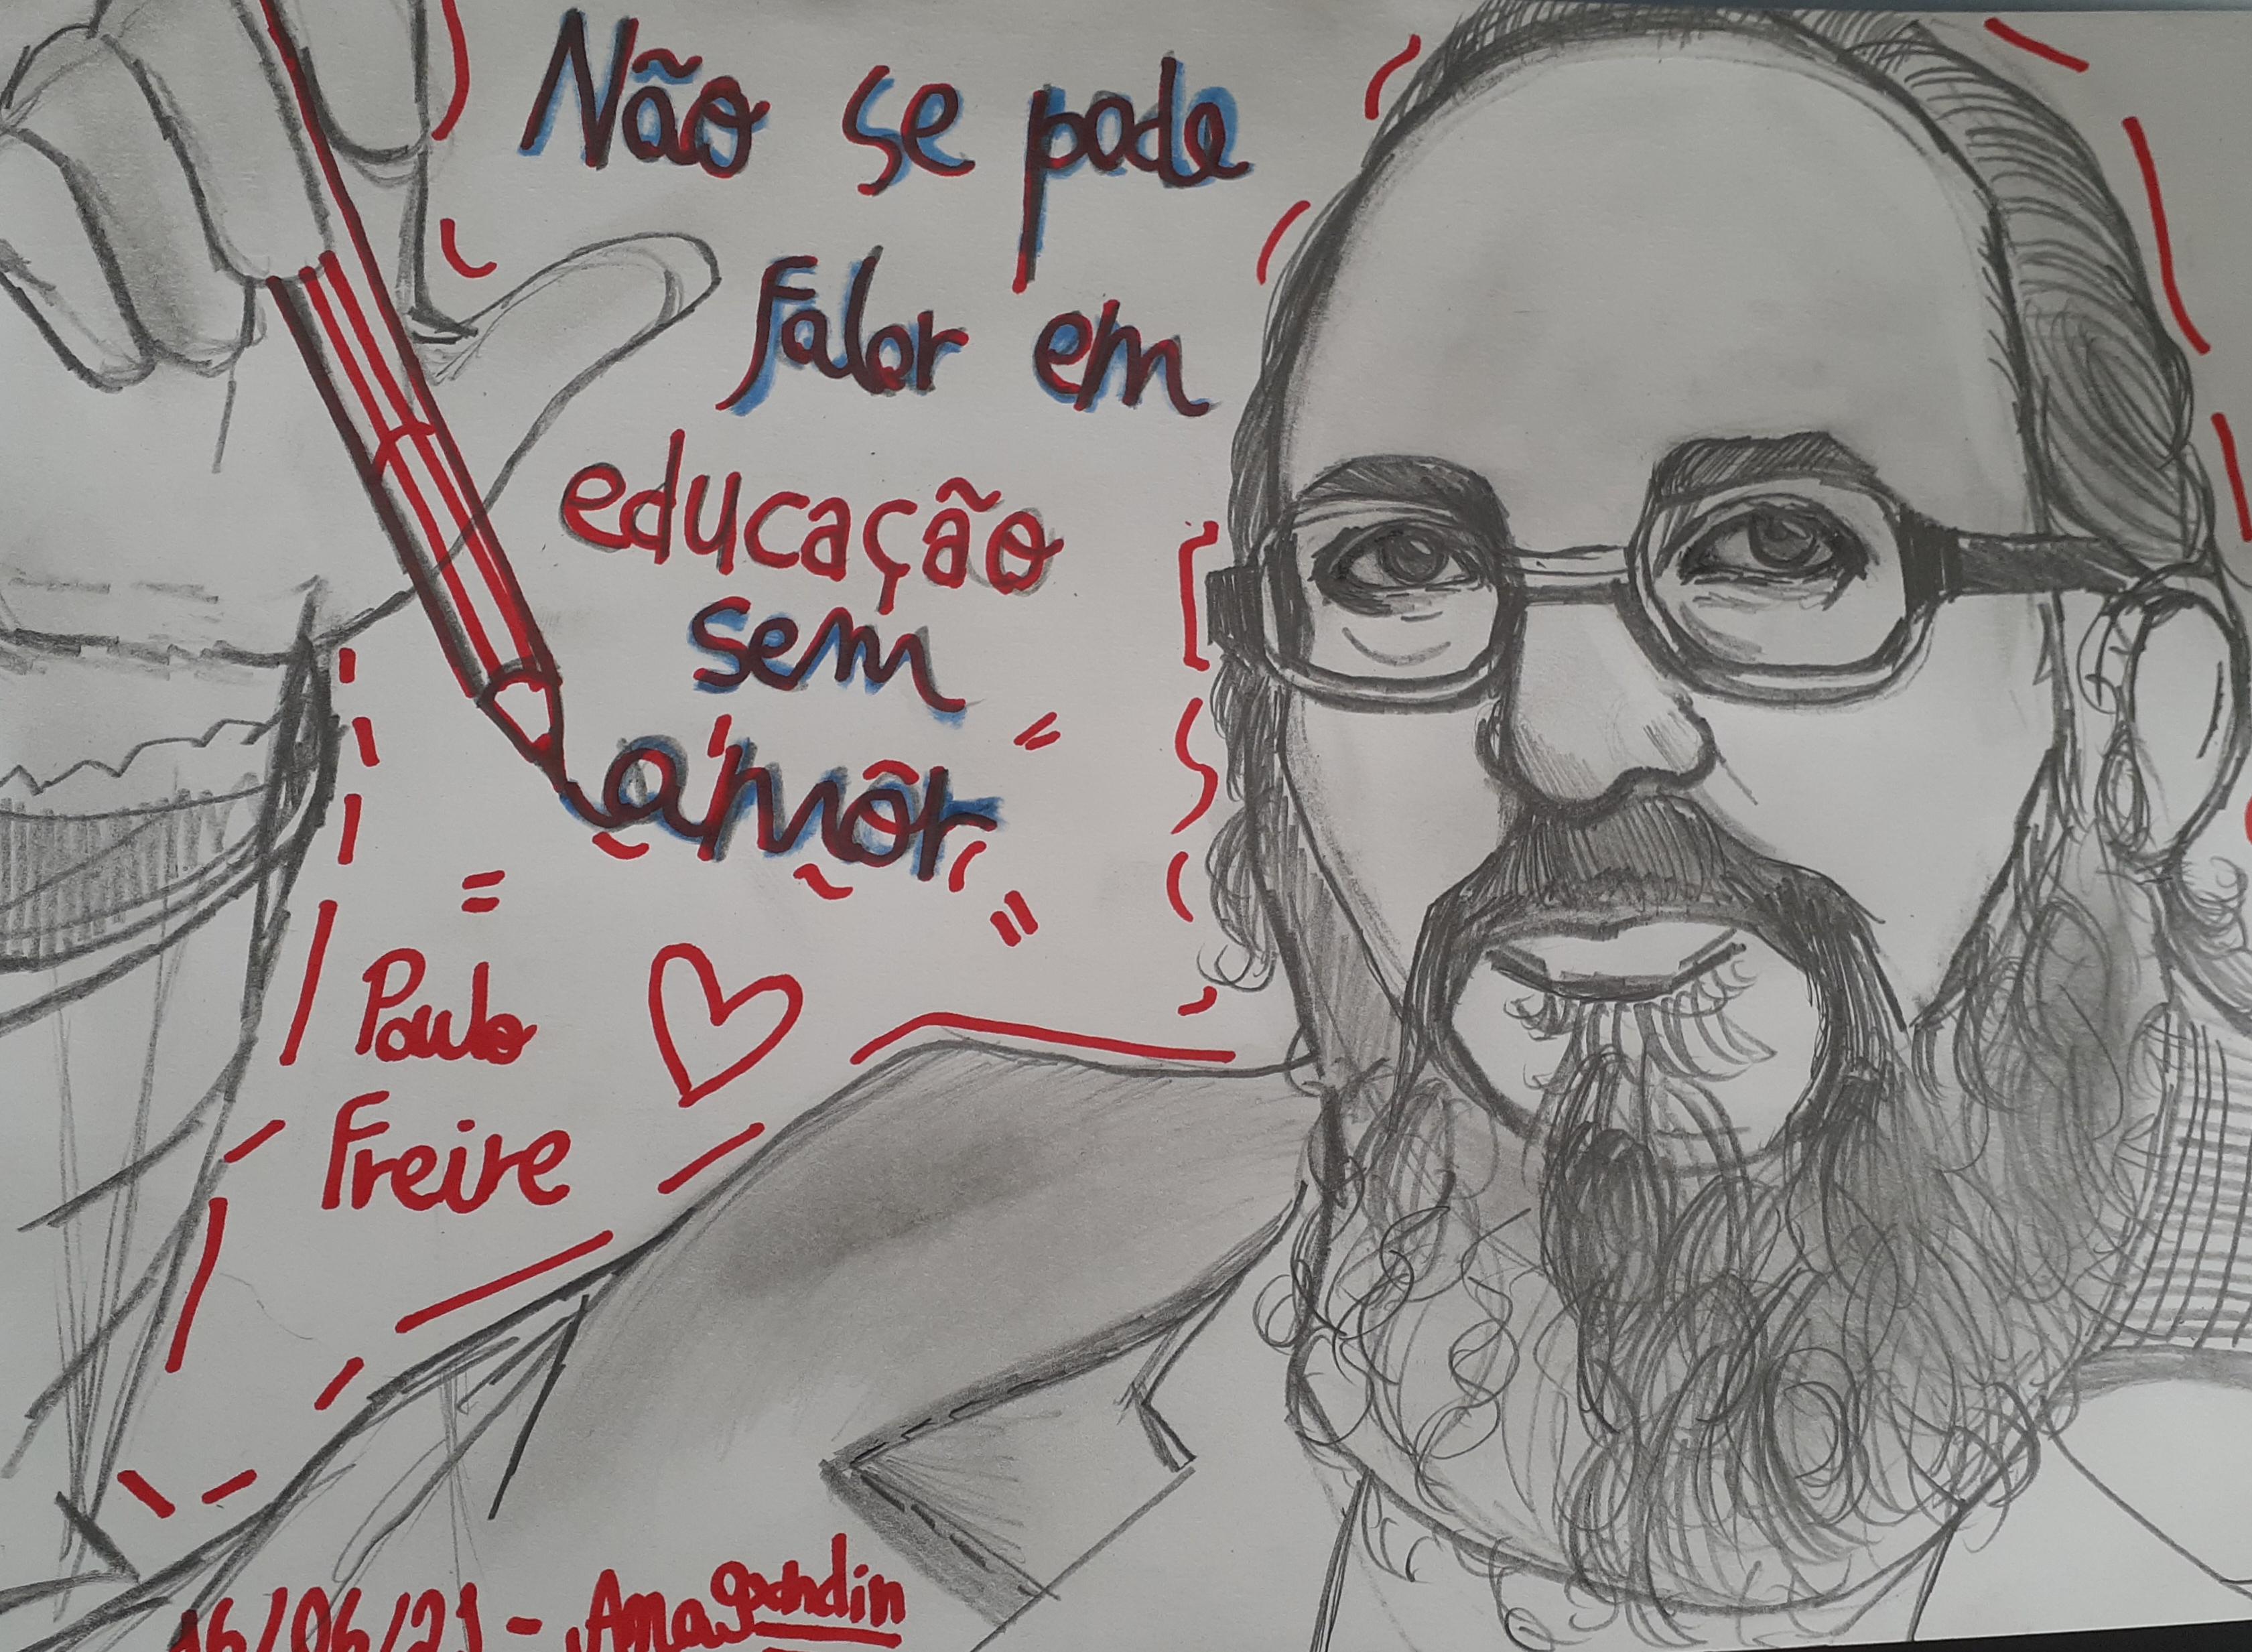 Não se pode
Falar em
educação
sem
amôr
Paulo
Freire
16/06/21 - Anagrandin